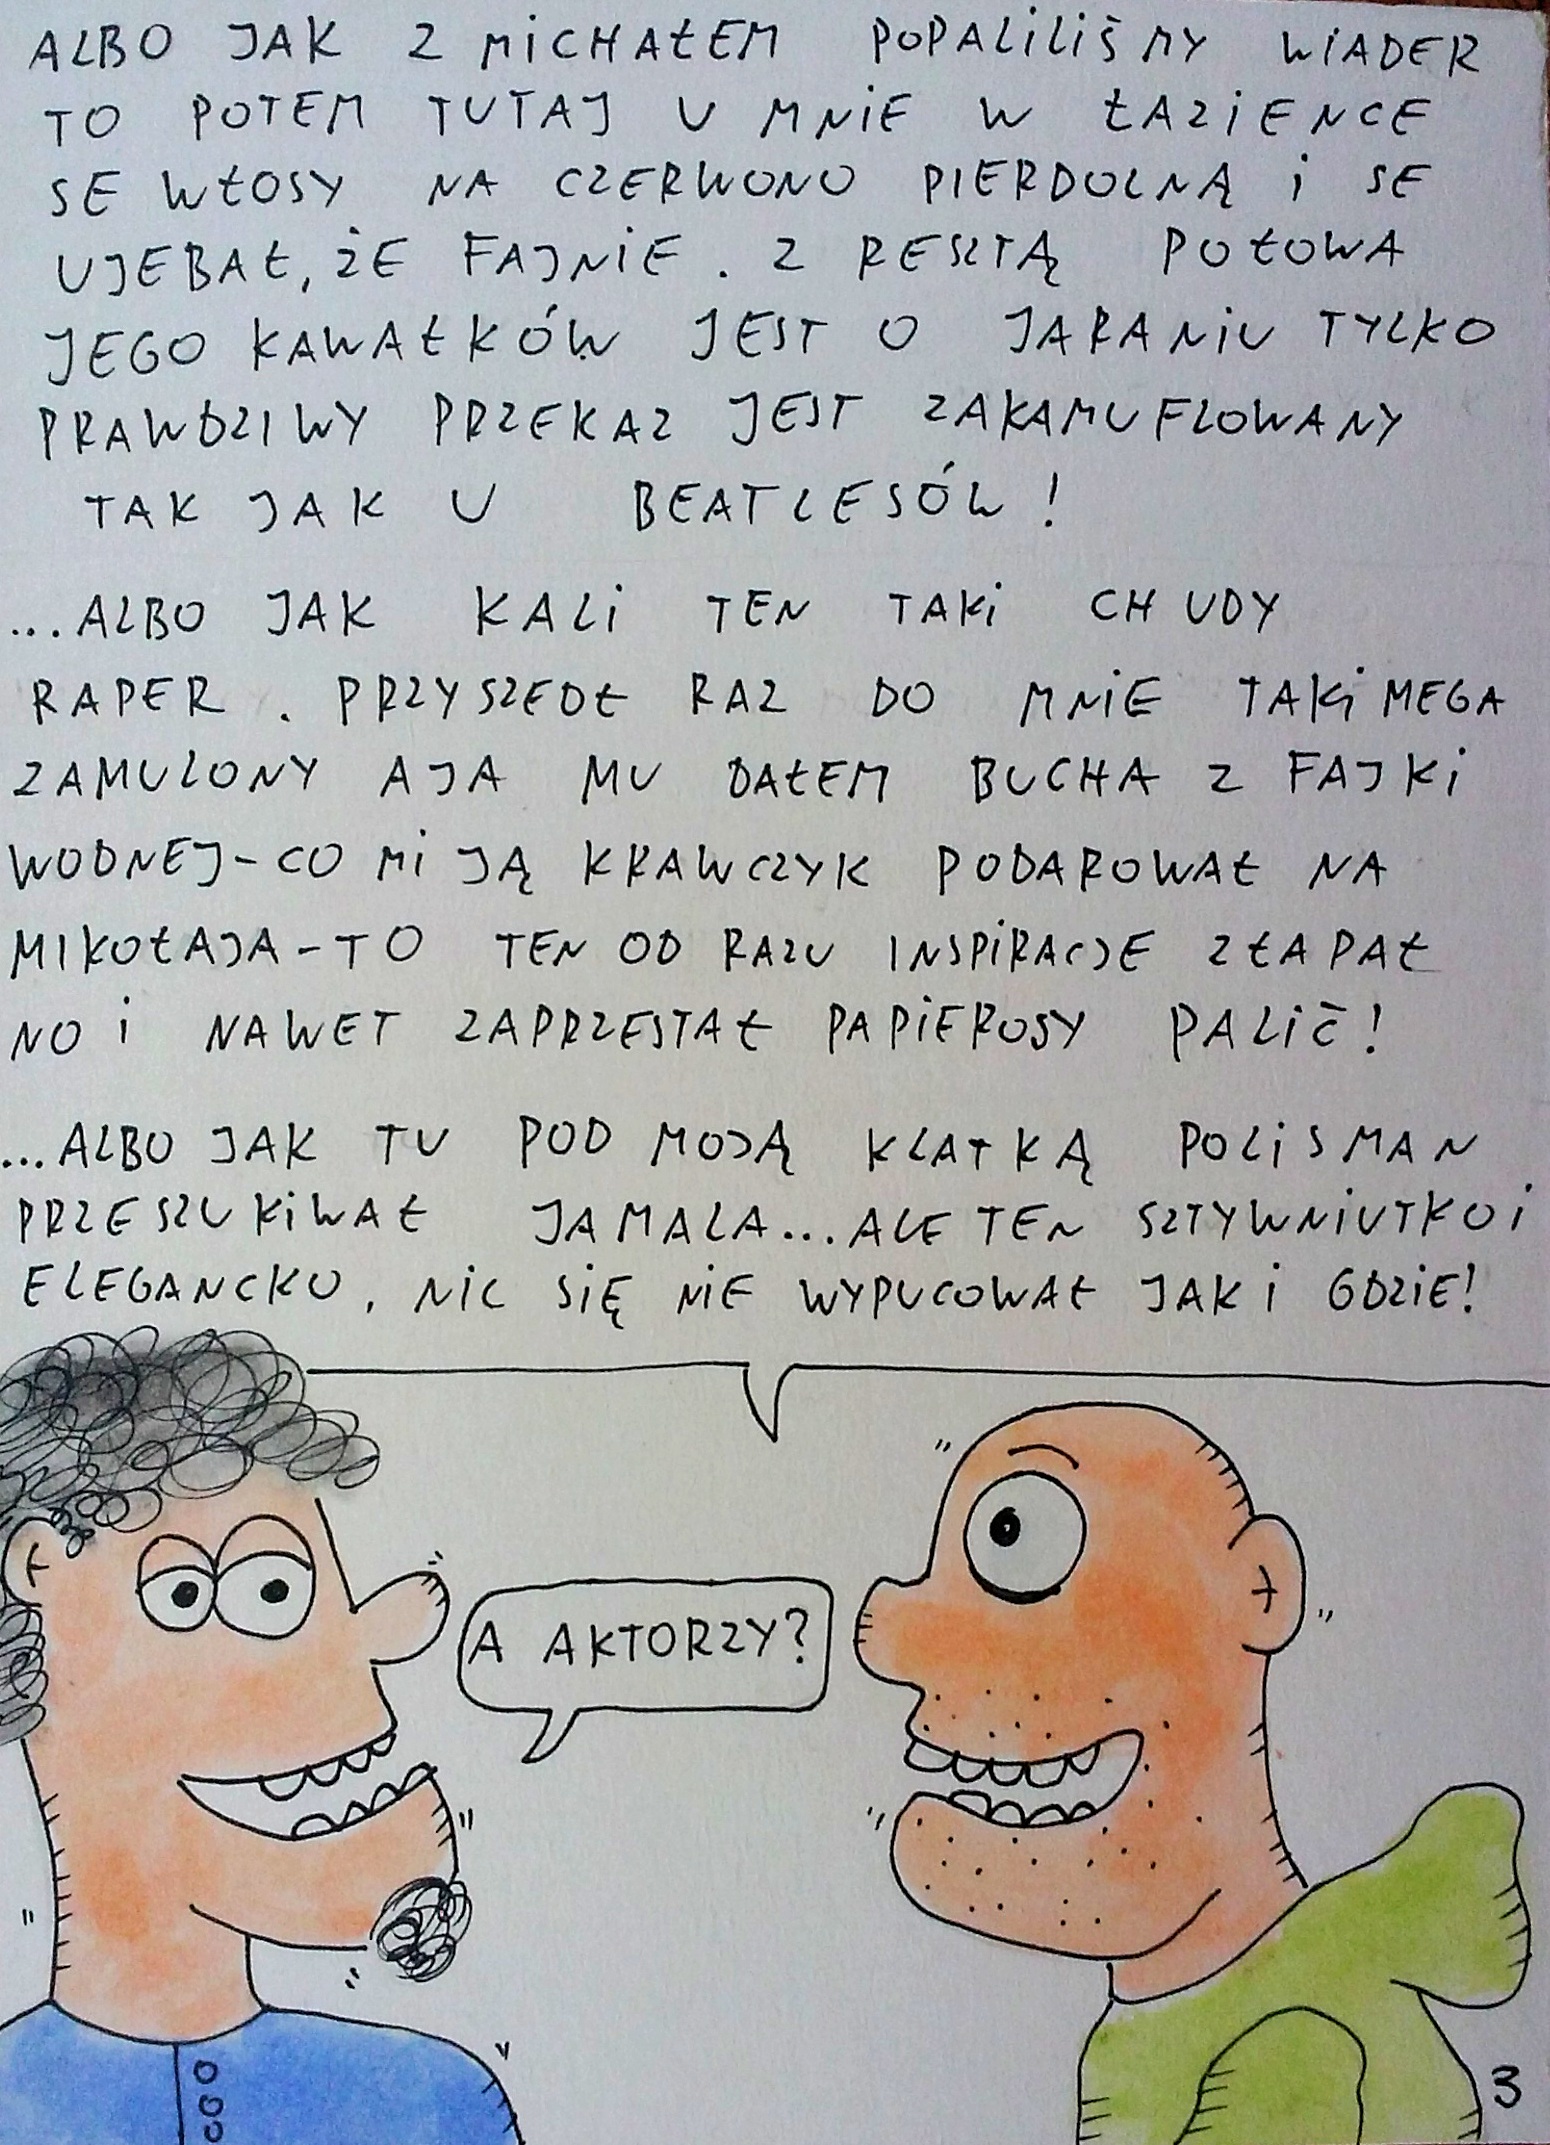 ALBO JAK Z MICHAŁEM POPALILIŚMY WIADER
TO POTEM TUTAJ U MNIE W ŁAZIENCE
SE WŁOSY NA CZERWONO PIERDOLNĄ I SE
UJEBAŁ, ŻE FAJNIE. Z RESZTĄ POŁOWA
JEGO KAWAŁKÓW JEST O JARANIU TYLKO
PRAWDZIWY PRZEKAZ JEST ZAKAMUFLOWANY
TAK JAK U BEATLESÓW!
...ALBO JAK KALI TEN TAKI CHUDY
RAPER. PRZYSZEDŁ RAZ DO MNIE TAKI MEGA
ZAMULONY A JA MU DAŁEM BUCHA Z FAJKI
WODNEJ-CO MI JĄ KRAWCZYK PODAROWAŁ NA
MIKOŁAJA-TO TEN OD RAZU INSPIRACJE ZŁAPAŁ
NO I NAWET ZAPRZESTAŁ PAPIEROSY PALIĆ!
...ALBO JAK TU POD MOJĄ KLATKĄ POLISMAN
PRZESZUKIWAŁ JAMALA...ALE TEN SZTYWNIUTKO I
ELEGANCKO, NIC SIĘ NIE WYPUCOWAŁ JAK I GDZIE!
A AKTORZY?
3